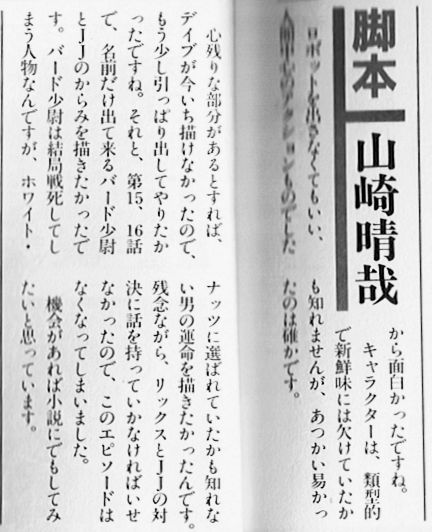 脚本
山崎晴哉
ロボットを出さなくてもいい、
人間中心のアクションものでした
から面白かったですね。
キャラクターは、類型的
で新鮮味には欠けていたか
も知れませんが、あつかい易かっ
たのは確かです。
心残りな部分があるとすれば、
デイブが今いち描けなかったので、
もう少し引っぱり出してやりたか
ったですね。それと、第15、16話
で、名前だけ出て来るバード少尉
とJJのからみを描きたかったで
す。バード少尉は結局戦死してし
まう人物なんですが、ホワイト・
ナッツに選ばれていたかも知れな
い男の運命を描きたかったんです。
残念ながら、リックスとJJの対
決に話を持っていかなければいせ
なかったので、このエピソードは
なくなってしまいました。
機会があれば小説にでもしてみ
たいと思っています。